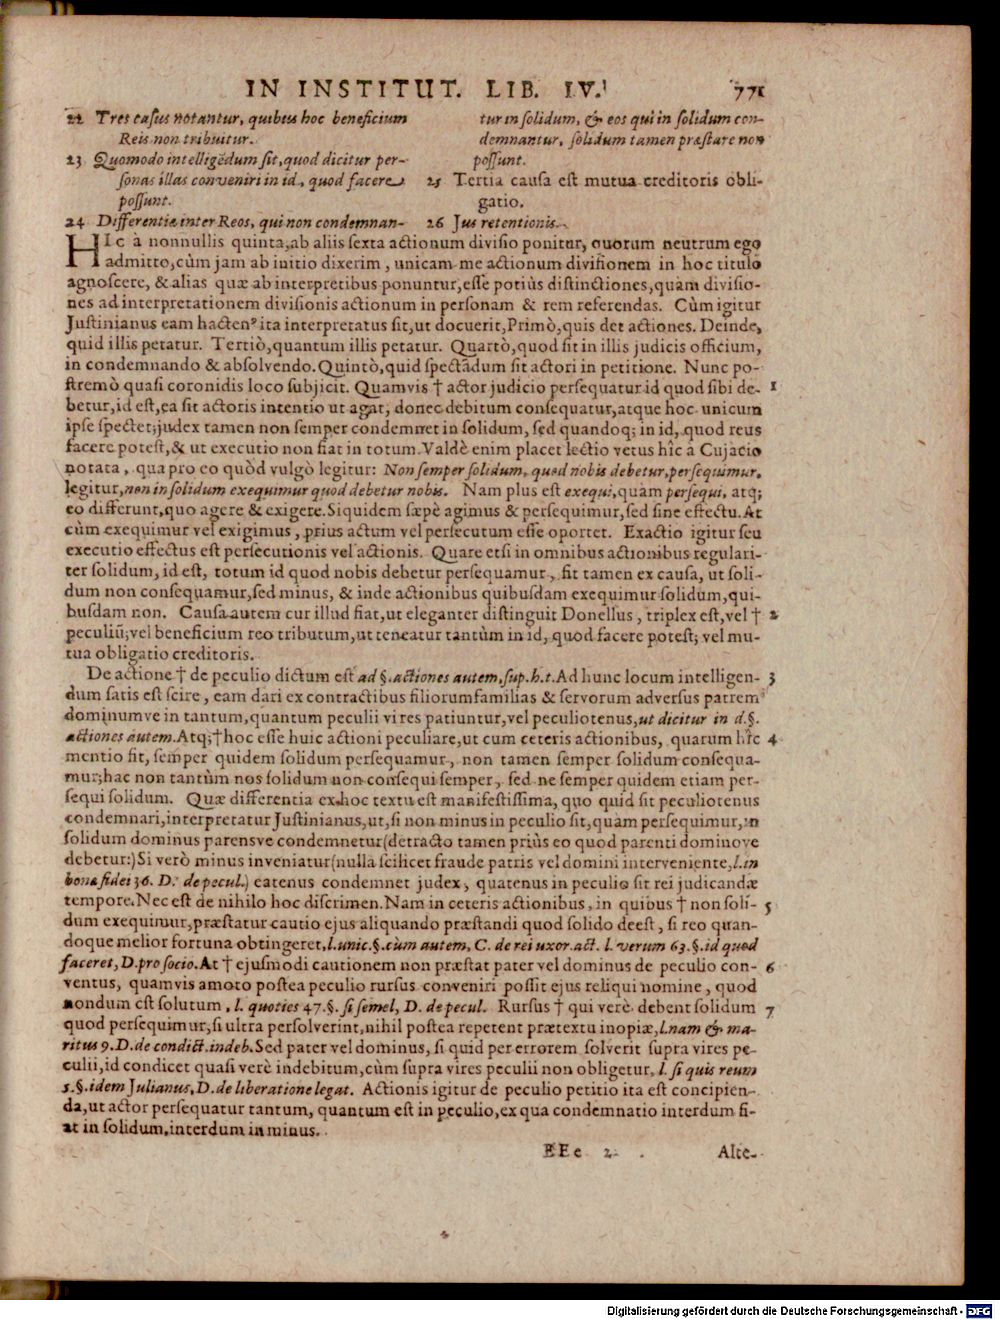 IN INSTITUT. LIB. IV.
771
22 Tres casus notantur, quibus hoc beneficium
Reis non tribuitur.
23 Quomodo intelligēdum sit, quod dicitur per-
sonas illas conveniri in id, quod facere
possunt.
24 Differentia inter Reos, qui non condemnan-
tur in solidum, & eos qui in solidum con-
demnantur, solidum tamen præstare non
possunt.
25 Tertia causa est mutua creditoris obli-
gatio.
26 Jus retentionis.
HIc à nonnullis quinta, ab aliis sexta actionum divisio ponitur, quorum neutrum ego
admitto, cùm jam ab initio dixerim, unicam me actionum divisionem in hoc titulo
agnoscere, & alias quæ ab interpretibus ponuntur, esse potiùs distinctiones, quàm divisio-
nes ad interpretationem divisionis actionum in personam & rem referendas. Cùm igitur
Justinianus eam hacten⁹ ita interpretatus sit, ut docuerit, Primò, quis det actiones. Deinde,
quid illis petatur. Tertiò, quantum illis petatur. Quartò, quod sit in illis judicis officium,
in condemnando & absolvendo. Quintò, quid spectādum sit actori in petitione. Nunc po-
stremò quasi coronidis loco subjicit. Quamvis † actor judicio persequatur id quod sibi de- 1
betur, id est, ea sit actoris intentio ut agat, donec debitum consequatur, atque hoc unicum
ipse spectet; judex tamen non semper condemnet in solidum, sed quandoq; in id, quod reus
facere potest, & ut executio non fiat in totum. Valdè enim placet lectio vetus hîc à Cujacio
notata, qua pro eo quòd vulgò legitur: Non semper solidum, quod nobis debetur, persequimur,
legitur, non in solidum exequimur quod debetur nobis. Nam plus est exequi, quàm persequi, atq;
eo differunt, quo agere & exigere. Siquidem sæpè agimus & persequimur, sed sine effectu. At
cùm exequimur vel exigimus, prius actum vel persecutum esse oportet. Exactio igitur seu
executio effectus est persecutionis vel actionis. Quare etsi in omnibus actionibus regulari-
ter solidum, id est, totum id quod nobis debetur persequamur, fit tamen ex causa, ut soli-
dum non consequamur, sed minus, & inde actionibus quibusdam exequimur solidum, qui-
busdam non. Causa autem cur illud fiat, ut eleganter distinguit Donellus, triplex est, vel † 2
peculiū; vel beneficium reo tributum, ut teneatur tantùm in id, quod facere potest; vel mu-
tua obligatio creditoris.
De actione † de peculio dictum est ad §. actiones autem, sup. h. t. Ad hunc locum intelligen- 3
dum satis est scire, eam dari ex contractibus filiorumfamilias & servorum adversus patrem
dominumve in tantum, quantum peculii vires patiuntur, vel peculiotenus, ut dicitur in d. §.
actiones autem. Atq; † hoc esse huic actioni peculiare, ut cum ceteris actionibus, quarum hîc 4
mentio fit, semper quidem solidum persequamur, non tamen semper solidum consequa-
mur; hac non tantùm nos solidum non consequi semper, sed ne semper quidem etiam per-
sequi solidum. Quæ differentia ex hoc textu est manifestissima, quo quid sit peculiotenus
condemnari, interpretatur Justinianus, ut, si non minus in peculio sit, quàm persequimur, in
solidum dominus parensve condemnetur (detracto tamen priùs eo quod parenti dominove
debetur:) Si verò minus inveniatur (nulla scilicet fraude patris vel domini interveniente, l. in
bonæ fidei 36. D. de pecul.) eatenus condemnet judex, quatenus in peculio sit rei judicandæ
tempore. Nec est de nihilo hoc discrimen. Nam in ceteris actionibus, in quibus † non soli- 5
dum exequimur, præstatur cautio ejus aliquando præstandi quod solido deest, si reo quan-
doque melior fortuna obtingeret, l. unic. §. cùm autem, C. de rei uxor. act. l. verum 63. §. id quod
facere, D. pro socio. At † ejusmodi cautionem non præstat pater vel dominus de peculio con- 6
ventus, quamvis amoto postea peculio rursus conveniri possit ejus reliqui nomine, quod
nondum est solutum, l. quoties 47. §. si semel, D. de pecul. Rursus † qui verè debent solidum 7
quod persequimur, si ultra persolverint, nihil postea repetent prætextu inopiæ, l. nam & ma-
ritus 9. D. de condict. indeb. Sed pater vel dominus, si quid per errorem solverit supra vires pe-
culii, id condicet quasi verè indebitum, cùm supra vires peculii non obligetur, l. si quis reum
5. §. idem Julianus, D. de liberatione legat. Actionis igitur de peculio petitio ita est concipien-
da, ut actor persequatur tantum, quantum est in peculio, ex qua condemnatio interdum fi-
at in solidum, interdum in minus.
EEe 2
Alte-
Digitalisierung gefördert durch die Deutsche Forschungsgemeinschaft - DFG